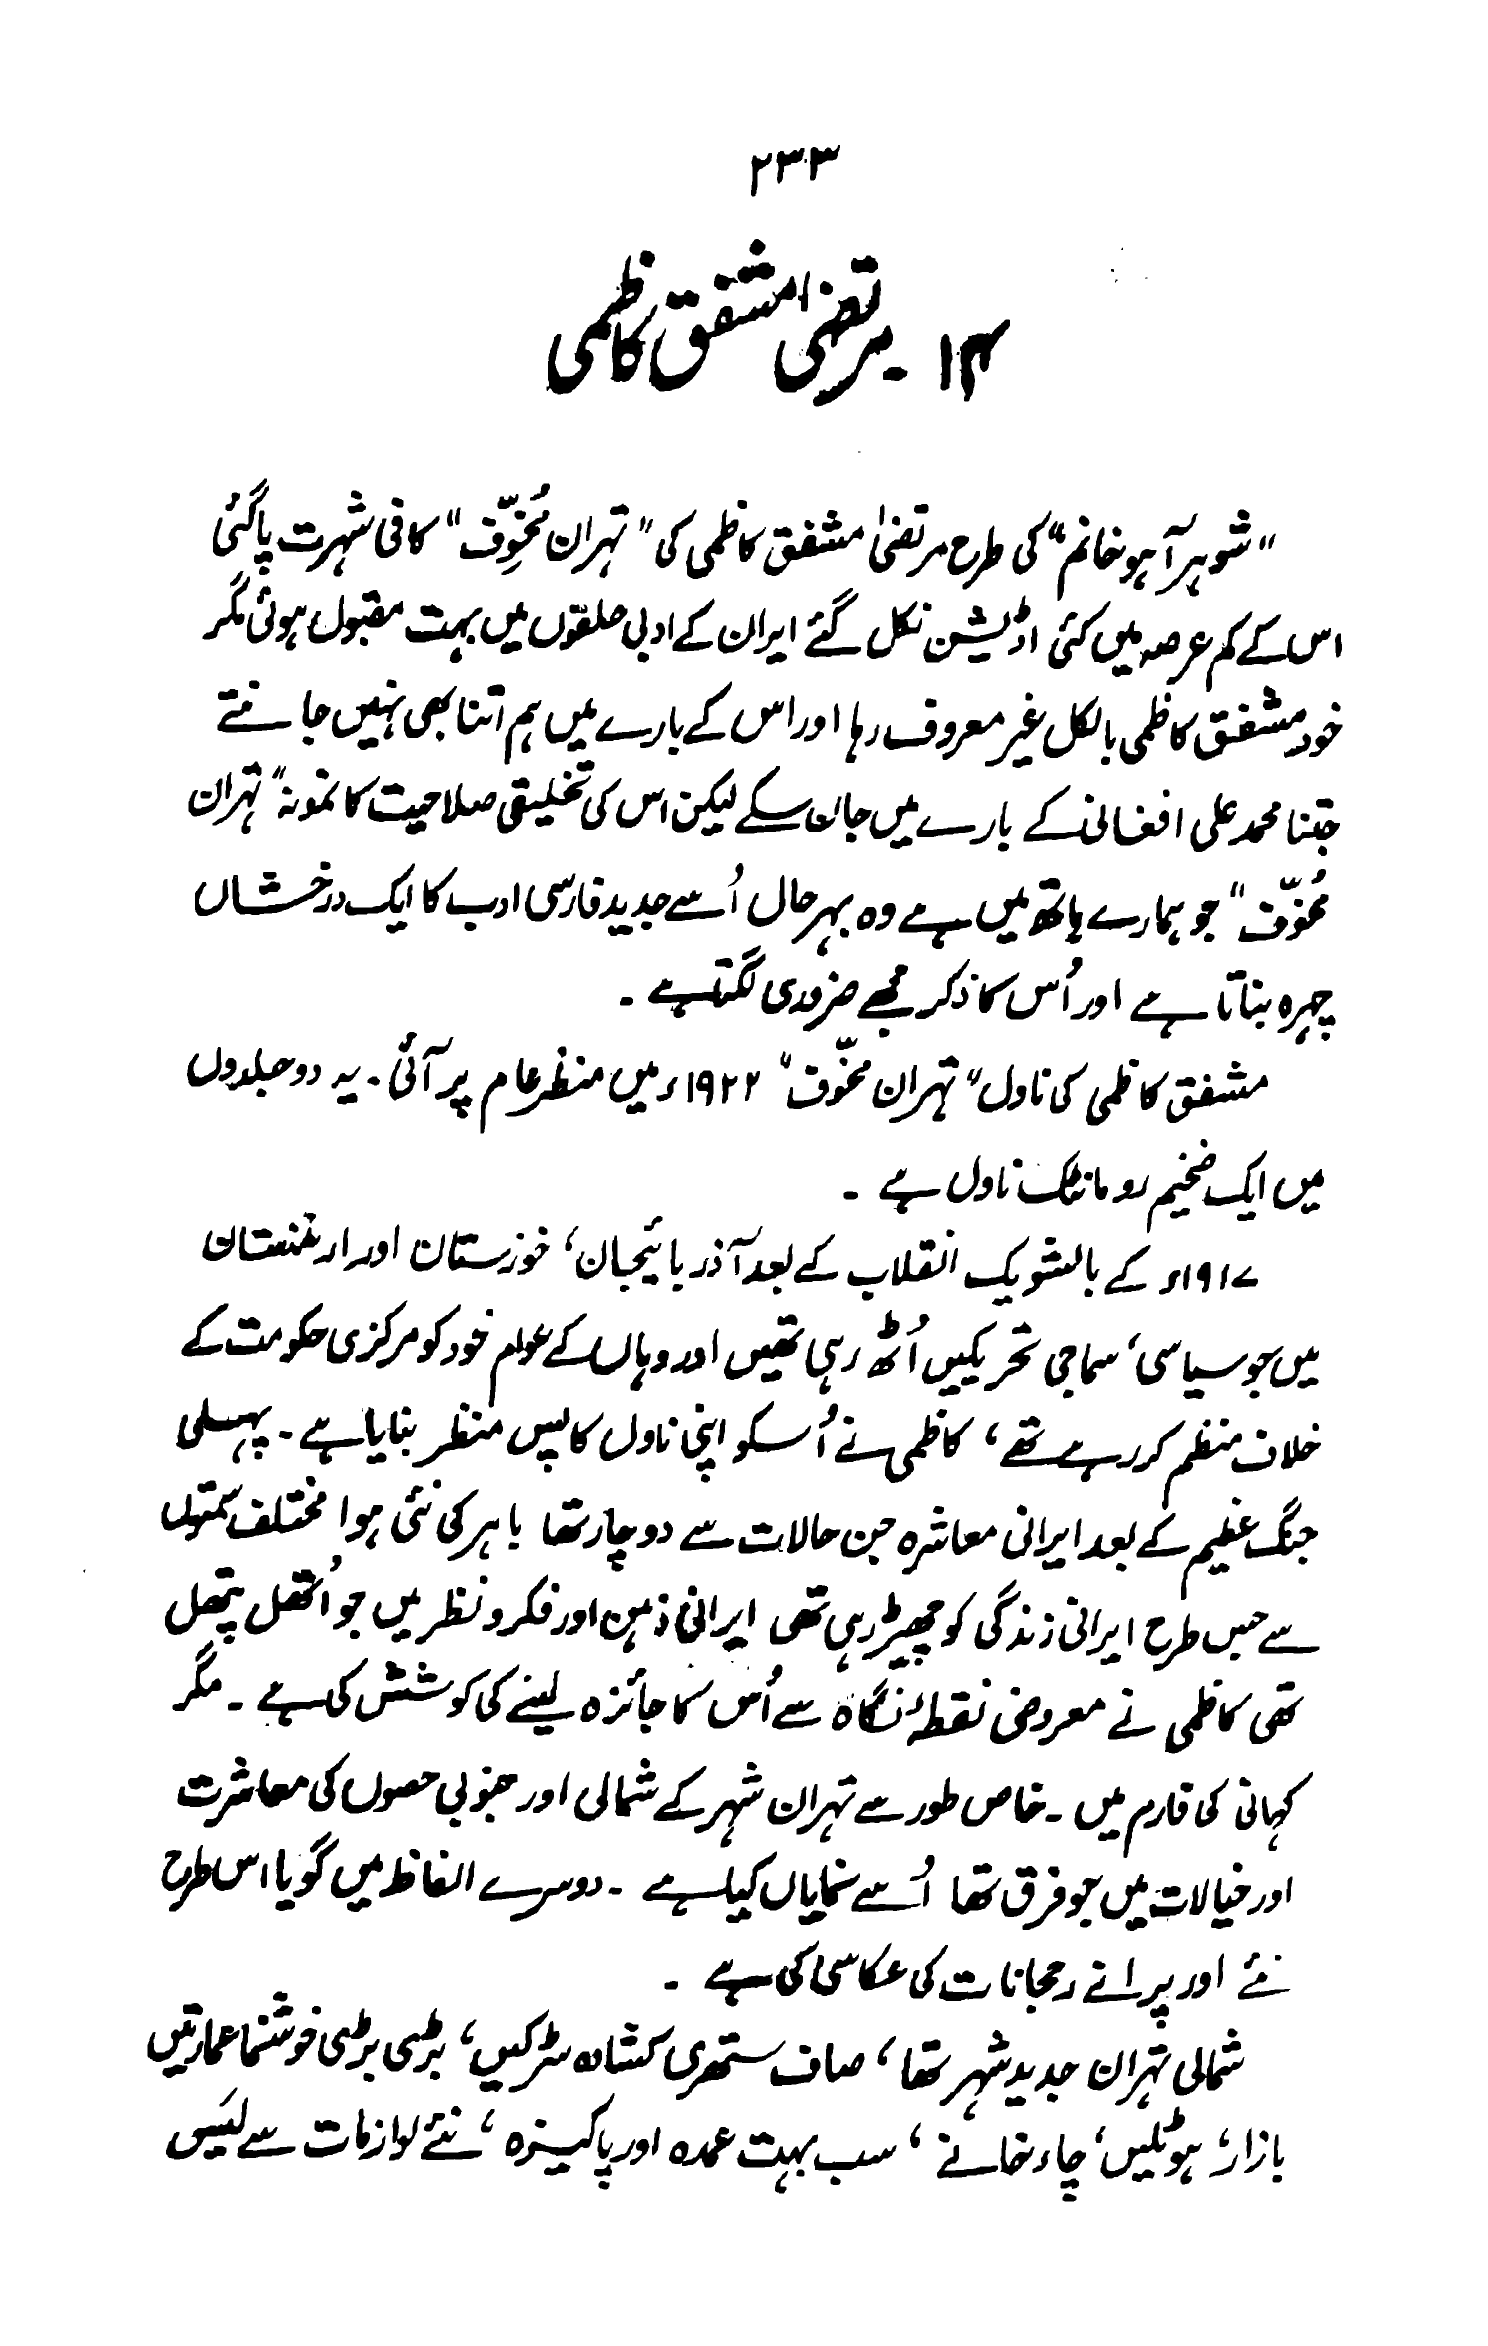 ۲۳۳
۱۴۔ مرتضیٰ مشفق کاظمی
"شوہر آہو خانم" کی طرح مرتضیٰ مشفق کاظمی کی "تہران مُخوِّف" کافی شہرت پا گئی
اس کے کم عرصہ میں کئی اڈیشن نکل گئے ایران کے ادبی حلقوں میں بہت مقبول ہوئی مگر
خود مشفق کاظمی بالکل غیر معروف رہا اور اس کے بارے میں ہم اتنا بھی نہیں جانتے
جتنا محمد علی افغانی کے بارے میں جان سکے لیکن اس کی تخلیقی صلاحیت کا نمونہ "تہران
مُخوّف" جو ہمارے ہاتھ میں ہے وہ بہرحال اُسے جدید فارسی ادب کا ایک درخشاں
چہرہ بناتا ہے اور اُس کا ذکر مجھے ضروری لگتا ہے ۔
مشفق کاظمی کی ناول "تہران مخوّف" ۱۹۲۲ء میں منظر عام پر آئی ۔ یہ دو جلدوں
میں ایک ضخیم رومانٹک ناول ہے ۔
۱۹۱۷ء کے بالشویک انقلاب کے بعد آذربائیجان، خوزستان اور ارمنستان
میں جو سیاسی، سماجی تحریکیں اُٹھ رہی تھیں اور وہاں کے عوام خود کو مرکزی حکومت کے
خلاف منظم کر رہے تھے، کاظمی نے اُسکو اپنی ناول کا پس منظر بنایا ہے ۔ پہلی
جنگ عظیم کے بعد ایرانی معاشرہ جن حالات سے دوچار تھا باہر کی نئی ہوا مختلف سمتوں
سے جس طرح ایرانی زندگی کو چھیڑ رہی تھی ایرانی ذہن اور فکر و نظر میں جو اُتھل پتھل
تھی کاظمی نے معروضی نقطۂ نگاہ سے اُس کا جائزہ لینے کی کوشش کی ہے ۔ مگر
کہانی کی فارم میں ۔ خاص طور سے تہران شہر کے شمالی اور جنوبی حصوں کی معاشرت
اور خیالات میں جو فرق تھا اُسے نمایاں کیا ہے ۔ دوسرے الفاظ میں گویا اس طرح
نئے اور پرانے رحجانات کی عکاسی کی ہے ۔
شمالی تہران جدید شہر تھا، صاف ستھری کشادہ سڑکیں، بڑی بڑی خوشنما عمارتیں
بازار، ہوٹلیں، چاء خانے، سب بہت عمدہ اور پاکیزہ، نئے لوازمات سے لیس